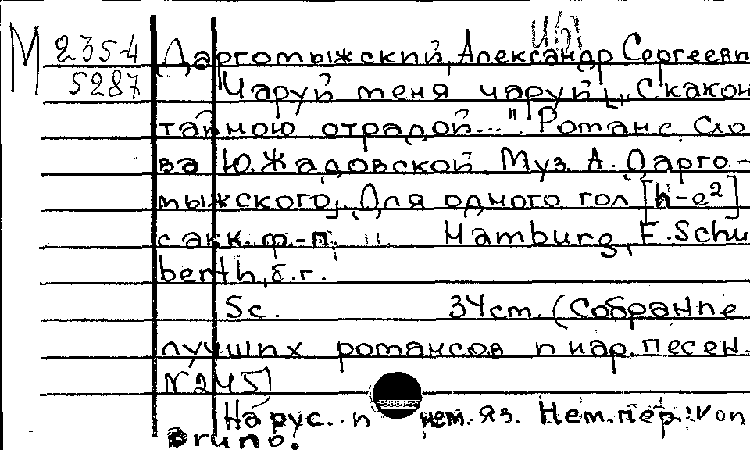 М 2354
5287
Даргомыжский, Александр Сергееви
Чаруй меня чаруй „С какой
тайною отрадой...". Романс. Сло
ва Ю. Жадовской. Муз. А. Дарго-
мыжского. Для одного гол [h-e²]
с акк. ф.-п. Hamburg, F. Schu
berth, б.г.
5с. 34 см. (Собрание
лучших романсов и нар. песен.
N 245)
На рус. и нем. яз. Нем. пер: von
Bruno.